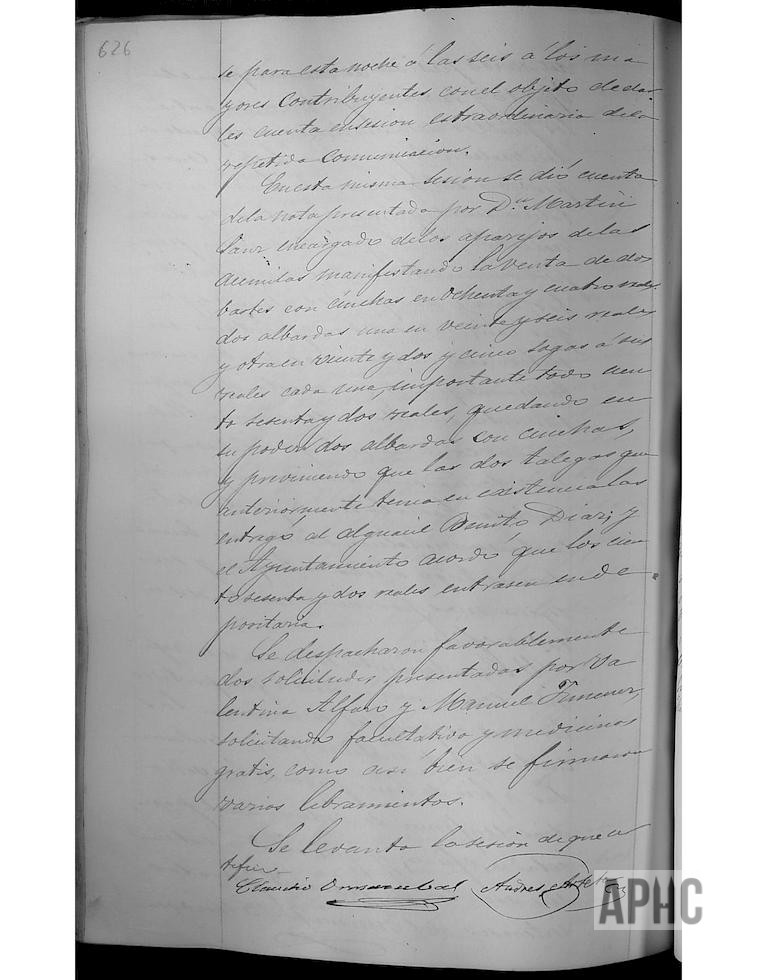 626
se para esta noche á las seis á los ma
yores contribuyentes con el objeto de dar
les cuenta en sesion estraordinaria de la
repetida comunicacion.
En esta misma sesion se dió cuenta
de la nota presentada por Dn Martin
Sanz encargado de los aparejos de las
acemilas manifestando la venta de dos
bastes con cinchas en ochenta y cuatro reales
dos albardas una en veinte y seis reales
y otra en veinte y dos y cinco sogas á seis
reales cada una, importante todo cien
to sesenta y dos reales, quedando en
su poder dos albardas con cinchas,
y previniendo que las dos talegas que
anteriormente tenia en existencia las
entregó al alguacil Benito Diaz; y
el Ayuntamiento acordó que los cien
to sesenta y dos reales entrasen en de
positaria.
Se despacharon favorablemente
dos solicitudes presentadas por Va
lentina Alfaro y Manuel Jimenez,
solicitando facultativo y medicinas
gratis, como asi bien se firmaron
varios libramientos.
Se levantó la sesion de que cer
tifico
Claudio Andres
APHC